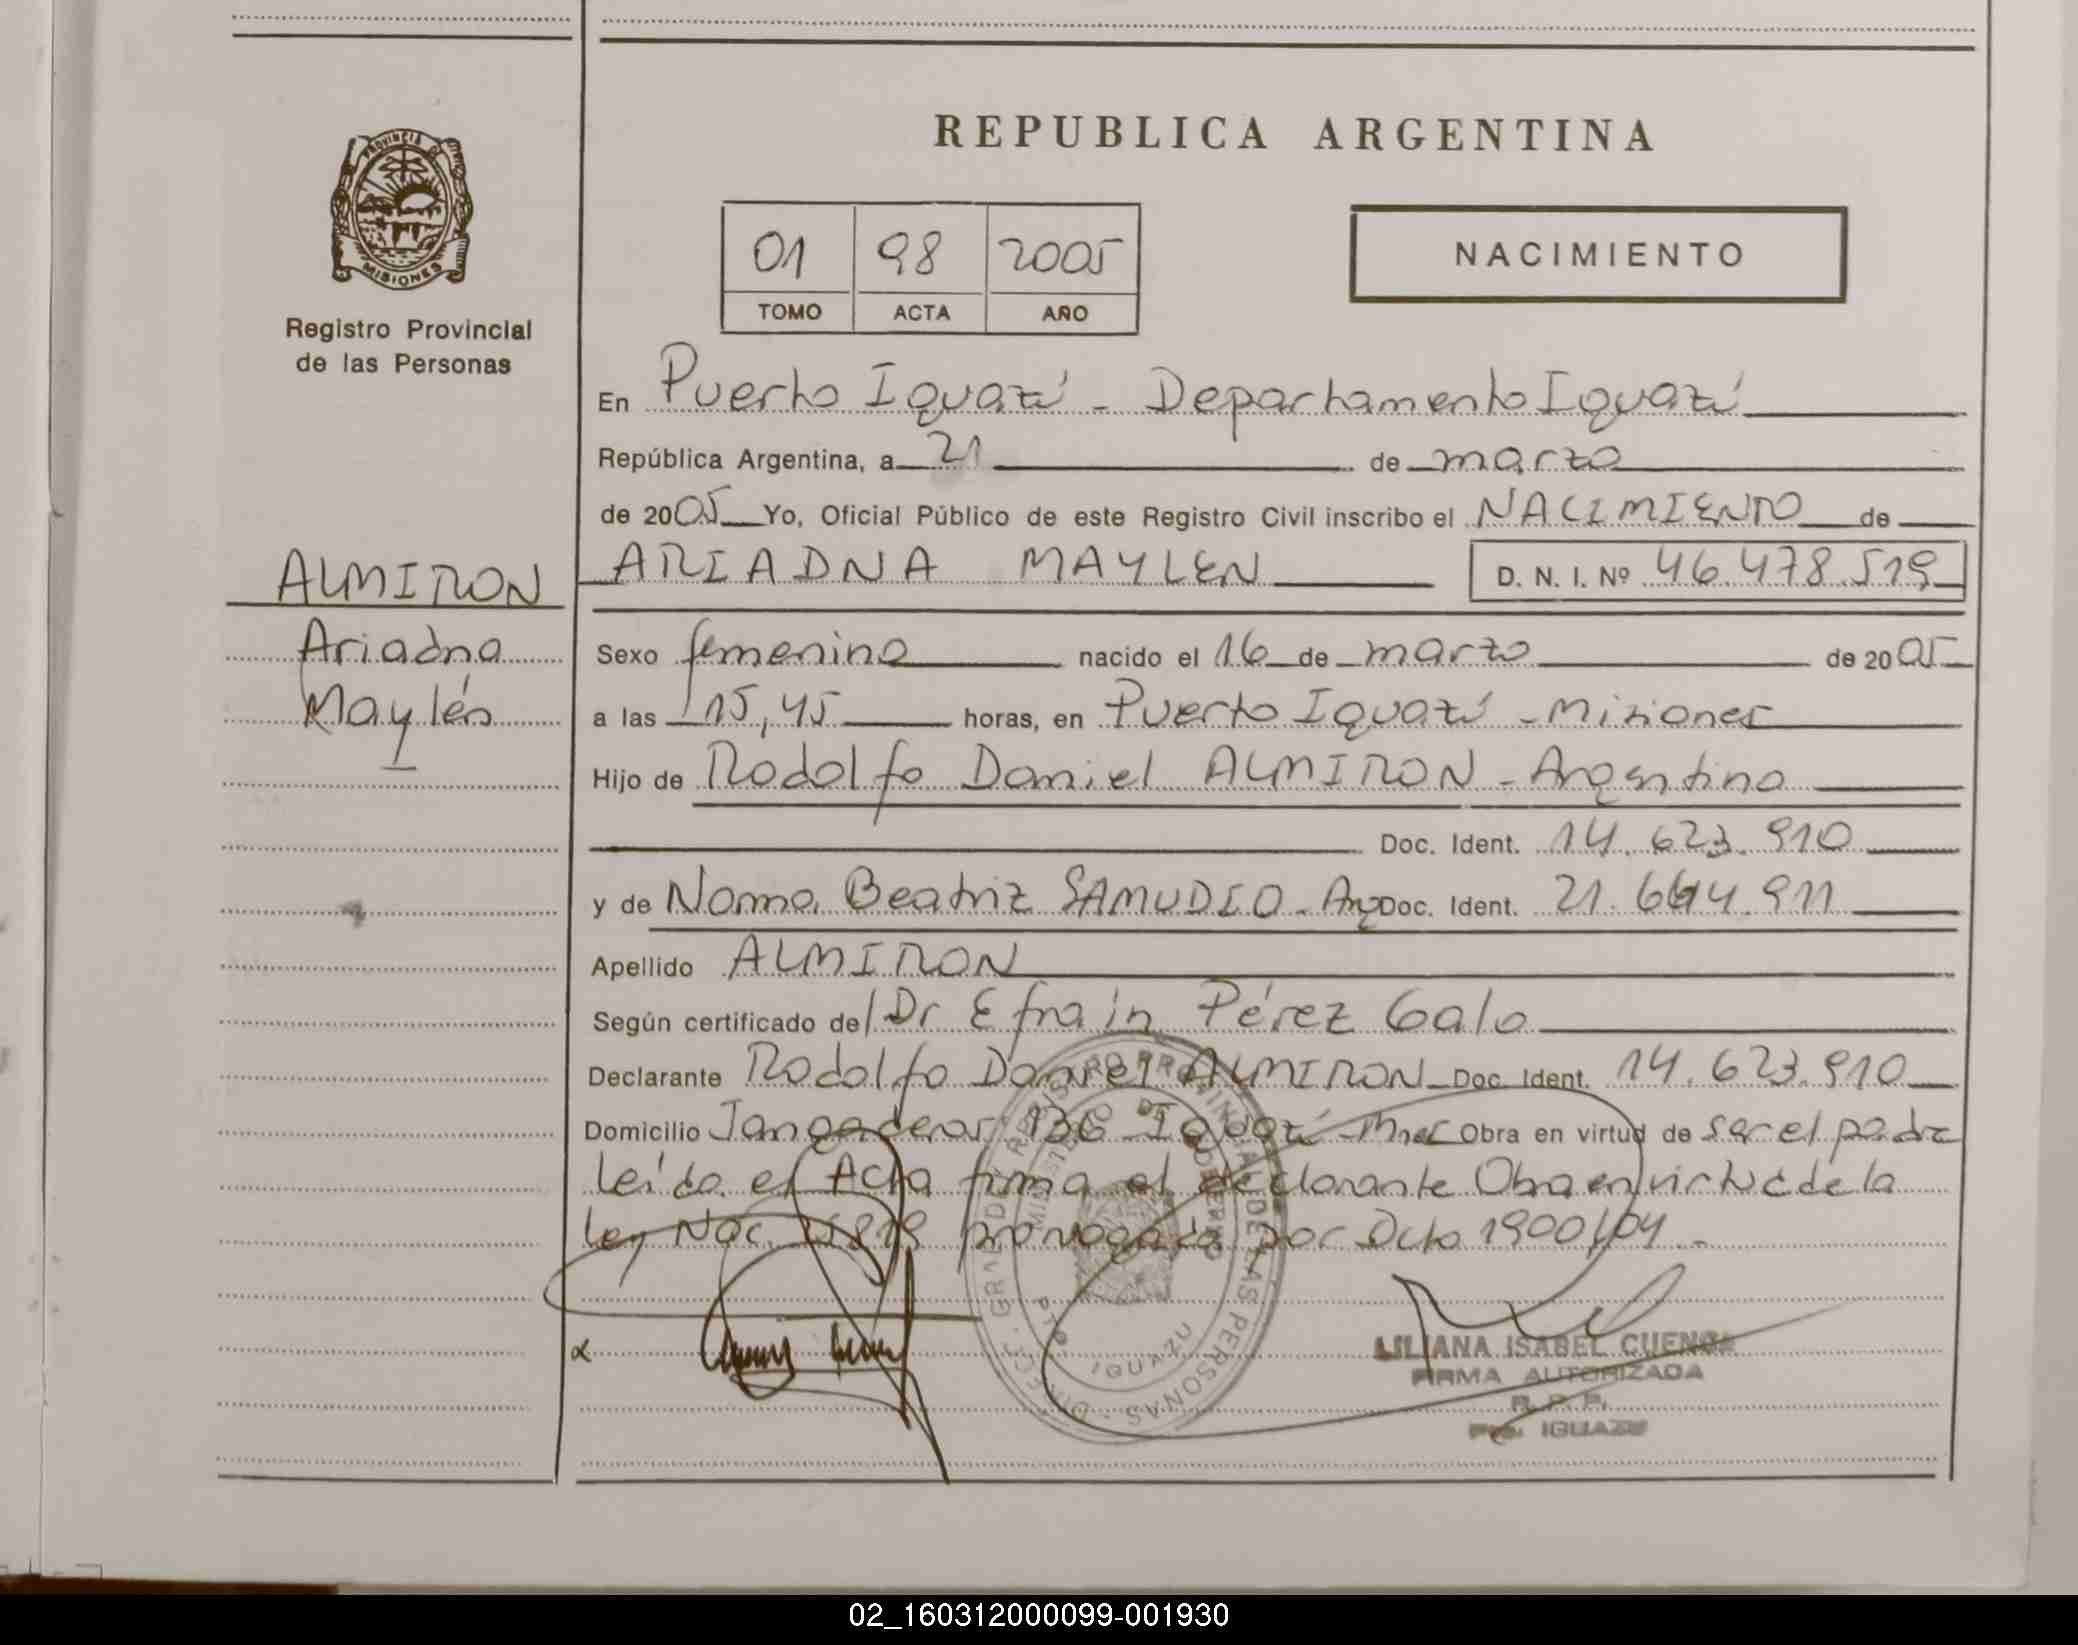 REPUBLICA ARGENTINA
PROVINCIA DE
MISIONES
Registro Provincial
de las Personas
01 98 2005
TOMO ACTA AÑO
NACIMIENTO
En Puerto Iguazú - Departamento Iguazú
República Argentina, a 21 de marzo
de 2005 Yo, Oficial Público de este Registro Civil inscribo el NACIMIENTO de
ALMIRON
Ariadna
Maylén
ARIADNA MAYLEN D. N. I. Nº 46.478.519
Sexo femenino nacido el 16 de marzo de 2005
a las 15,45 horas, en Puerto Iguazú - Misiones
Hijo de Rodolfo Daniel ALMIRON - Argentino
Doc. Ident. 14.623.910
y de Norma Beatriz SAMUDIO - Arg Doc. Ident.
Apellido ALMIRON
Según certificado del Dr Efraín Pérez Galo
Declarante Rodolfo Daniel ALMIRON Doc. Ident. 14.623.910
Domicilio Jangaderos 136 Iguazú - Mnes Obra en virtud de ser el padre
leída el Acta firma el declarante Obra en virtud de la
ley Nac. 25819 prorrogada por Dcto 1900/04 -
LILIANA ISABEL CUENCA
FIRMA AUTORIZADA
R. P. P.
Pto. IGUAZU
REGISTRO PROVINCIAL DE LAS PERSONAS
MINISTERIO DE GOBIERNO
PTO. IGUAZU
02_160312000099-001930